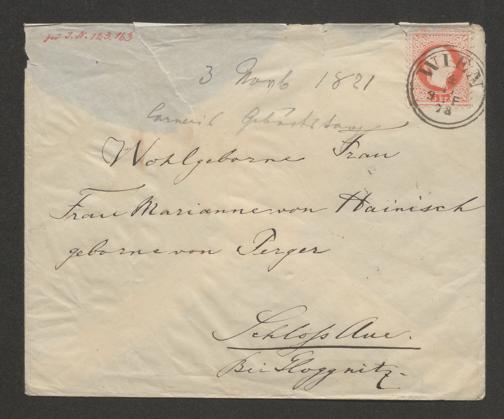 zu I.N. 123.163
3 Novb 1821
Carneris Geburtstag
WIEN
78
Wohlgeborne Frau
Frau Marianne von Hainisch
geborne von Perger
Schloß Aue.
Bei Gloggnitz.